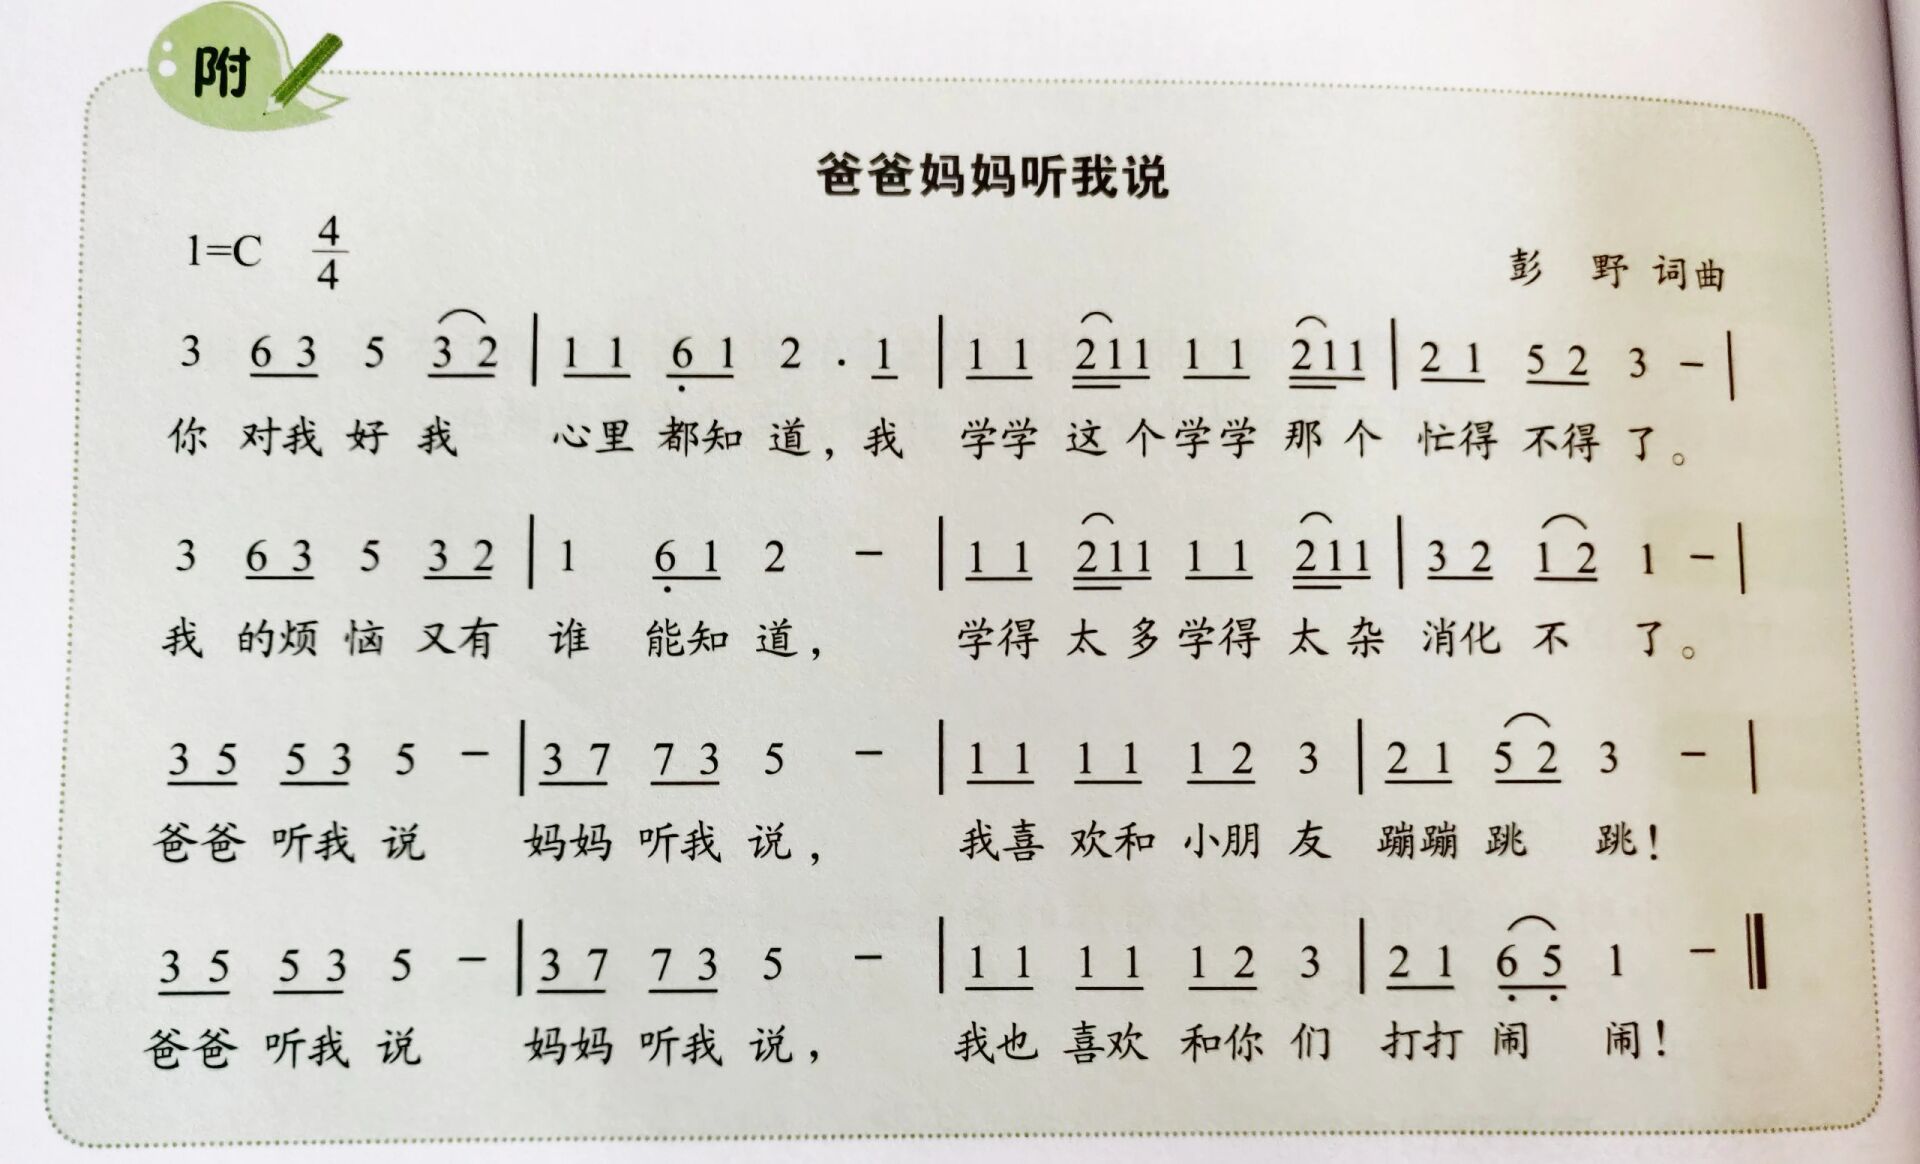 附
爸爸妈妈听我说
1=C 4/4
彭 野 词曲
3 6 3 5 3 2 | 1 1 6̣ 1 2 · 1 | 1 1 2 1 1 1 1 2 1 1 | 2 1 5 2 3 − |
你 对我 好 我 心里 都知 道，我 学学 这 个 学学 那 个 忙得 不得 了。
3 6 3 5 3 2 | 1 6̣ 1 2 − | 1 1 2 1 1 1 1 2 1 1 | 3 2 1 2 1 − |
我 的烦 恼 又有 谁 能知 道， 学得 太 多 学得 太 杂 消化 不 了。
3 5 5 3 5 − | 3 7 7 3 5 − | 1 1 1 1 1 2 3 | 2 1 5 2 3 − |
爸爸 听我 说 妈妈 听我 说， 我喜 欢和 小朋 友 蹦蹦 跳 跳！
3 5 5 3 5 − | 3 7 7 3 5 − | 1 1 1 1 1 2 3 | 2 1 6̣ 5̣ 1 − ‖
爸爸 听我 说 妈妈 听我 说， 我也 喜欢 和你 们 打打 闹 闹！